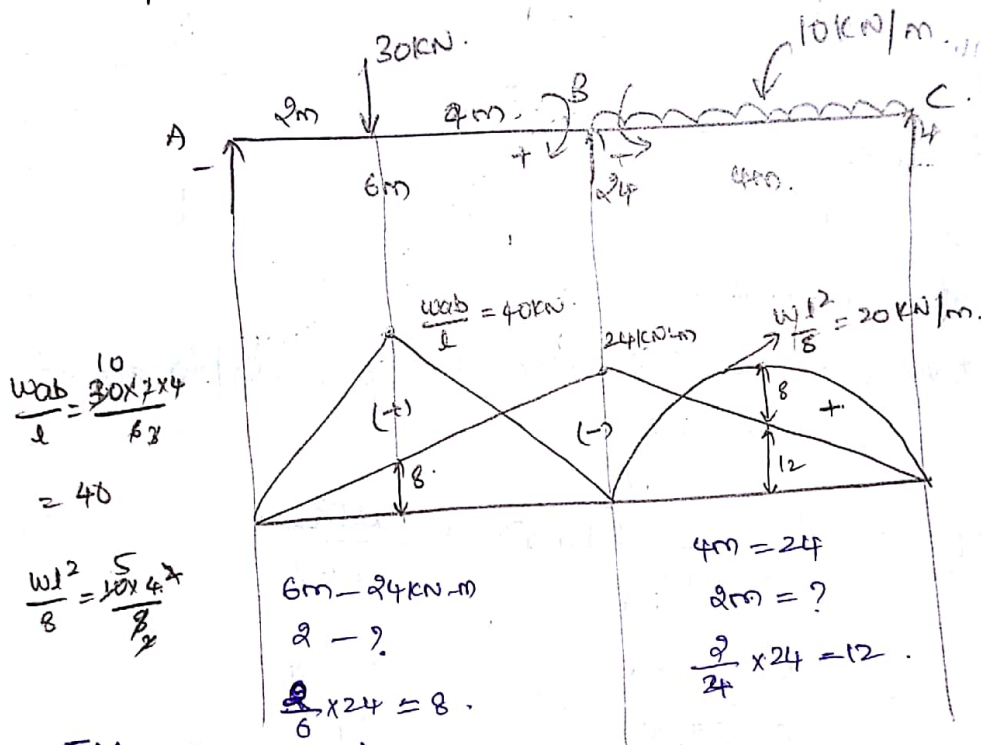 30KN.
10KN/m.
2m
4m.
B
C.
A
+
+
6m
24
4m.
4
wab/l = 40KN.
24KN-m
wl²/8 = 20KN/m.
wab/l = 30x2x4/6
10
(+)
(-)
8
+
8.
12
= 40
wl²/8 = 10x4²/8
5
6m - 24KN-m
2 - ?
2/6 x 24 = 8.
4m = 24
2m = ?
2/24 x 24 = 12.